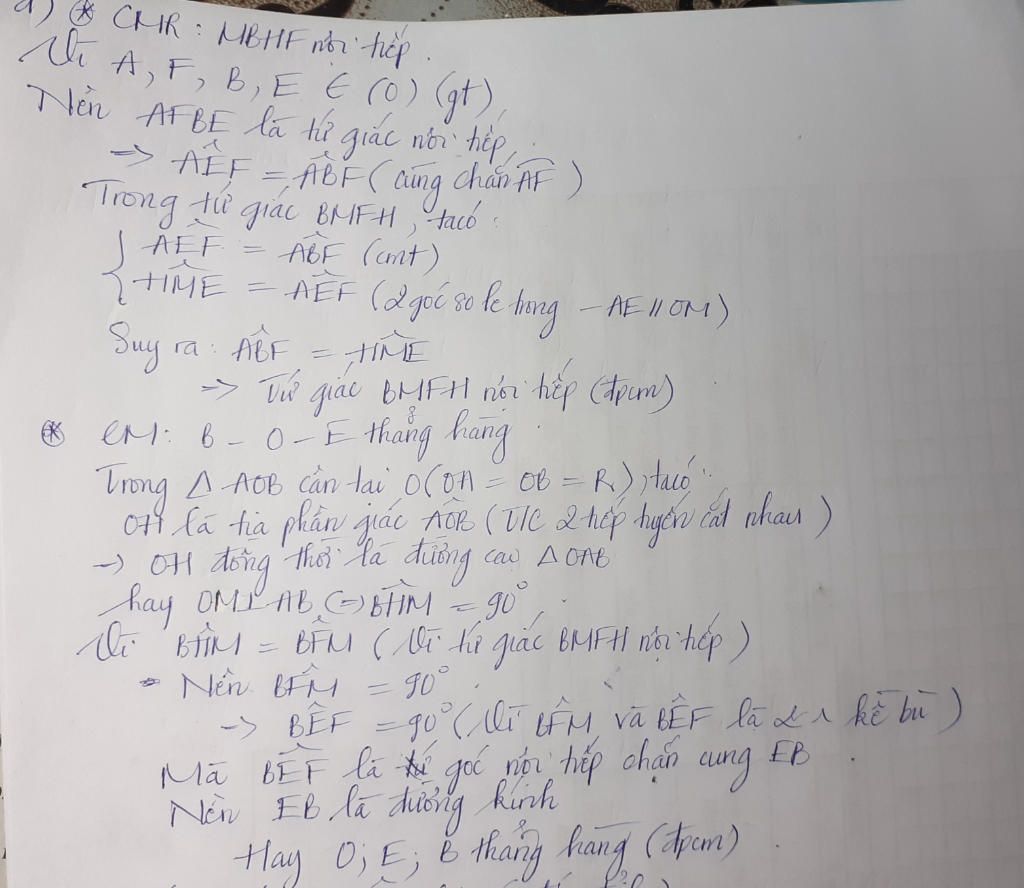 a) * CMR: MBHF nội tiếp.
Vì A, F, B, E ∈ (O) (gt)
Nên AFBE là tứ giác nội tiếp,
=> AÊF = AB̂F (cùng chắn AF)
Trong tứ giác BMFH, ta có:
{ AÊF = AB̂F (cmt)
HM̂E = AÊF (2 góc so le trong - AE // OM)
Suy ra: AB̂F = HM̂E
=> Tứ giác BMFH nội tiếp (đpcm)
* CM: B - O - E thẳng hàng.
Trong Δ AOB cân tại O (OA = OB = R), ta có:
OH là tia phân giác AÔB (T/C 2 tiếp tuyến cắt nhau)
-> OH đồng thời là đường cao Δ OAB
hay OM⊥AB (=) BĤM = 90°,
Vì BĤM = BF̂M (Vì tứ giác BMFH nội tiếp)
Nên BF̂M = 90°.
-> BÊF = 90° (Vì BF̂M và BÊF là 2 kề bù)
Mà BÊF là góc nội tiếp chắn cung EB.
Nên EB là đường kính
Hay O; E; B thẳng hàng (đpcm).